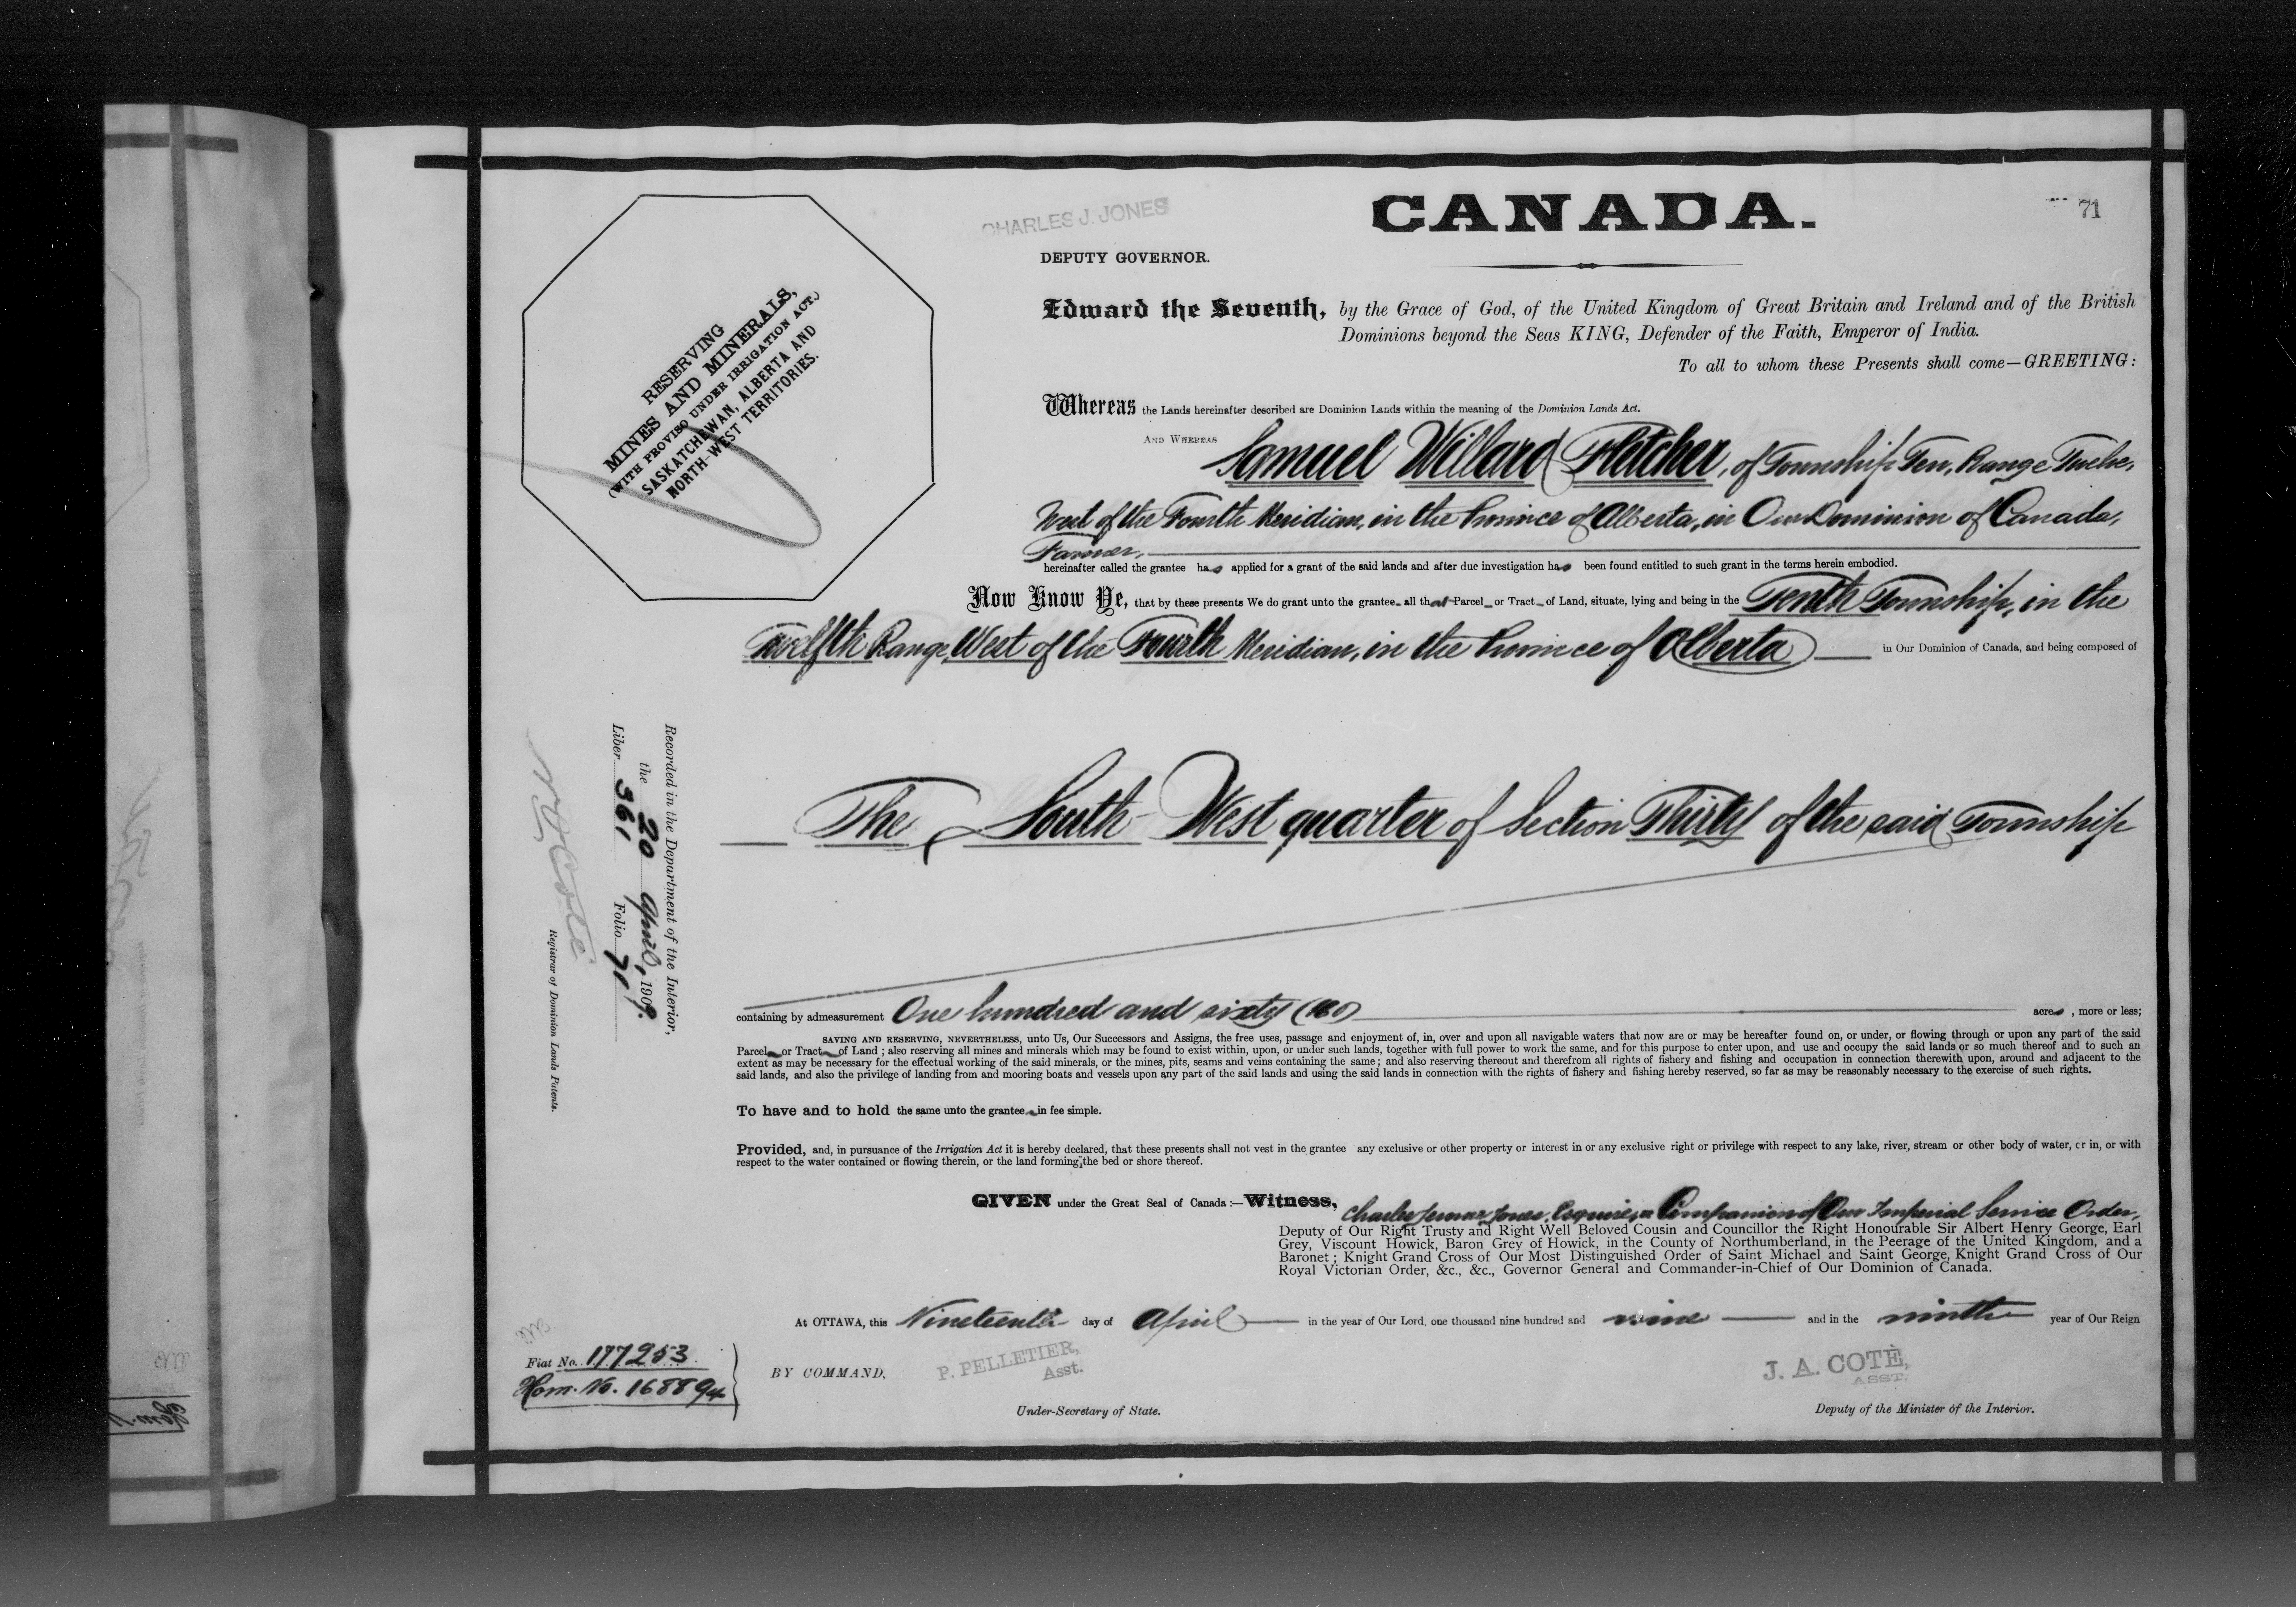 CANADA.
71
CHARLES J. JONES
DEPUTY GOVERNOR.
RESERVING
MINES AND MINERALS,
(WITH PROVISO UNDER IRRIGATION ACT.)
SASKATCHEWAN, ALBERTA AND
NORTH-WEST TERRITORIES.
Edward the Seventh, by the Grace of God, of the United Kingdom of Great Britain and Ireland and of the British
Dominions beyond the Seas KING, Defender of the Faith, Emperor of India.
To all to whom these Presents shall come—GREETING:
Whereas the Lands hereinafter described are Dominion Lands within the meaning of the Dominion Lands Act.
AND WHEREAS Samuel Willard Fletcher, of Township Ten, Range Twelve,
West of the Fourth Meridian, in the Province of Alberta, in Our Dominion of Canada,
Farmer,
hereinafter called the grantee has applied for a grant of the said lands and after due investigation has been found entitled to such grant in the terms herein embodied.
Now Know Ye, that by these presents We do grant unto the grantee all that Parcel or Tract of Land, situate, lying and being in the Tenth Township, in the
Twelfth Range, West of the Fourth Meridian, in the Province of Alberta in Our Dominion of Canada, and being composed of
The South-West quarter of Section Thirty of the said Township
Recorded in the Department of the Interior,
the 20 April, 1909.
Liber 361 Folio 71
N O Coté
Registrar of Dominion Lands Patents.
containing by admeasurement One hundred and sixty (160) acres, more or less;
SAVING AND RESERVING, NEVERTHELESS, unto Us, Our Successors and Assigns, the free uses, passage and enjoyment of, in, over and upon all navigable waters that now are or may be hereafter found on, or under, or flowing through or upon any part of the said
Parcel or Tract of Land; also reserving all mines and minerals which may be found to exist within, upon, or under such lands, together with full power to work the same, and for this purpose to enter upon, and use and occupy the said lands or so much thereof and to such an
extent as may be necessary for the effectual working of the said minerals, or the mines, pits, seams and veins containing the same; and also reserving thereout and therefrom all rights of fishery and fishing and occupation in connection therewith upon, around and adjacent to the
said lands, and also the privilege of landing from and mooring boats and vessels upon any part of the said lands and using the said lands in connection with the rights of fishery and fishing hereby reserved, so far as may be reasonably necessary to the exercise of such rights.
To have and to hold the same unto the grantee in fee simple.
Provided, and, in pursuance of the Irrigation Act it is hereby declared, that these presents shall not vest in the grantee any exclusive or other property or interest in or any exclusive right or privilege with respect to any lake, river, stream or other body of water, or in, or with
respect to the water contained or flowing therein, or the land forming the bed or shore thereof.
GIVEN under the Great Seal of Canada:—Witness, Charles Jermas Jones, Esquire, a Companion of Our Imperial Service Order,
Deputy of Our Right Trusty and Right Well Beloved Cousin and Councillor the Right Honourable Sir Albert Henry George, Earl
Grey, Viscount Howick, Baron Grey of Howick, in the County of Northumberland, in the Peerage of the United Kingdom, and a
Baronet; Knight Grand Cross of Our Most Distinguished Order of Saint Michael and Saint George, Knight Grand Cross of Our
Royal Victorian Order, &c., &c., Governor General and Commander-in-Chief of Our Dominion of Canada.
At OTTAWA, this Nineteenth day of April in the year of Our Lord, one thousand nine hundred and nine and in the ninth year of Our Reign
Fiat No. 177253
Hom. No. 168894
BY COMMAND,
P. PELLETIER,
Asst.
Under-Secretary of State.
J. A. COTÉ,
ASST.
Deputy of the Minister of the Interior.